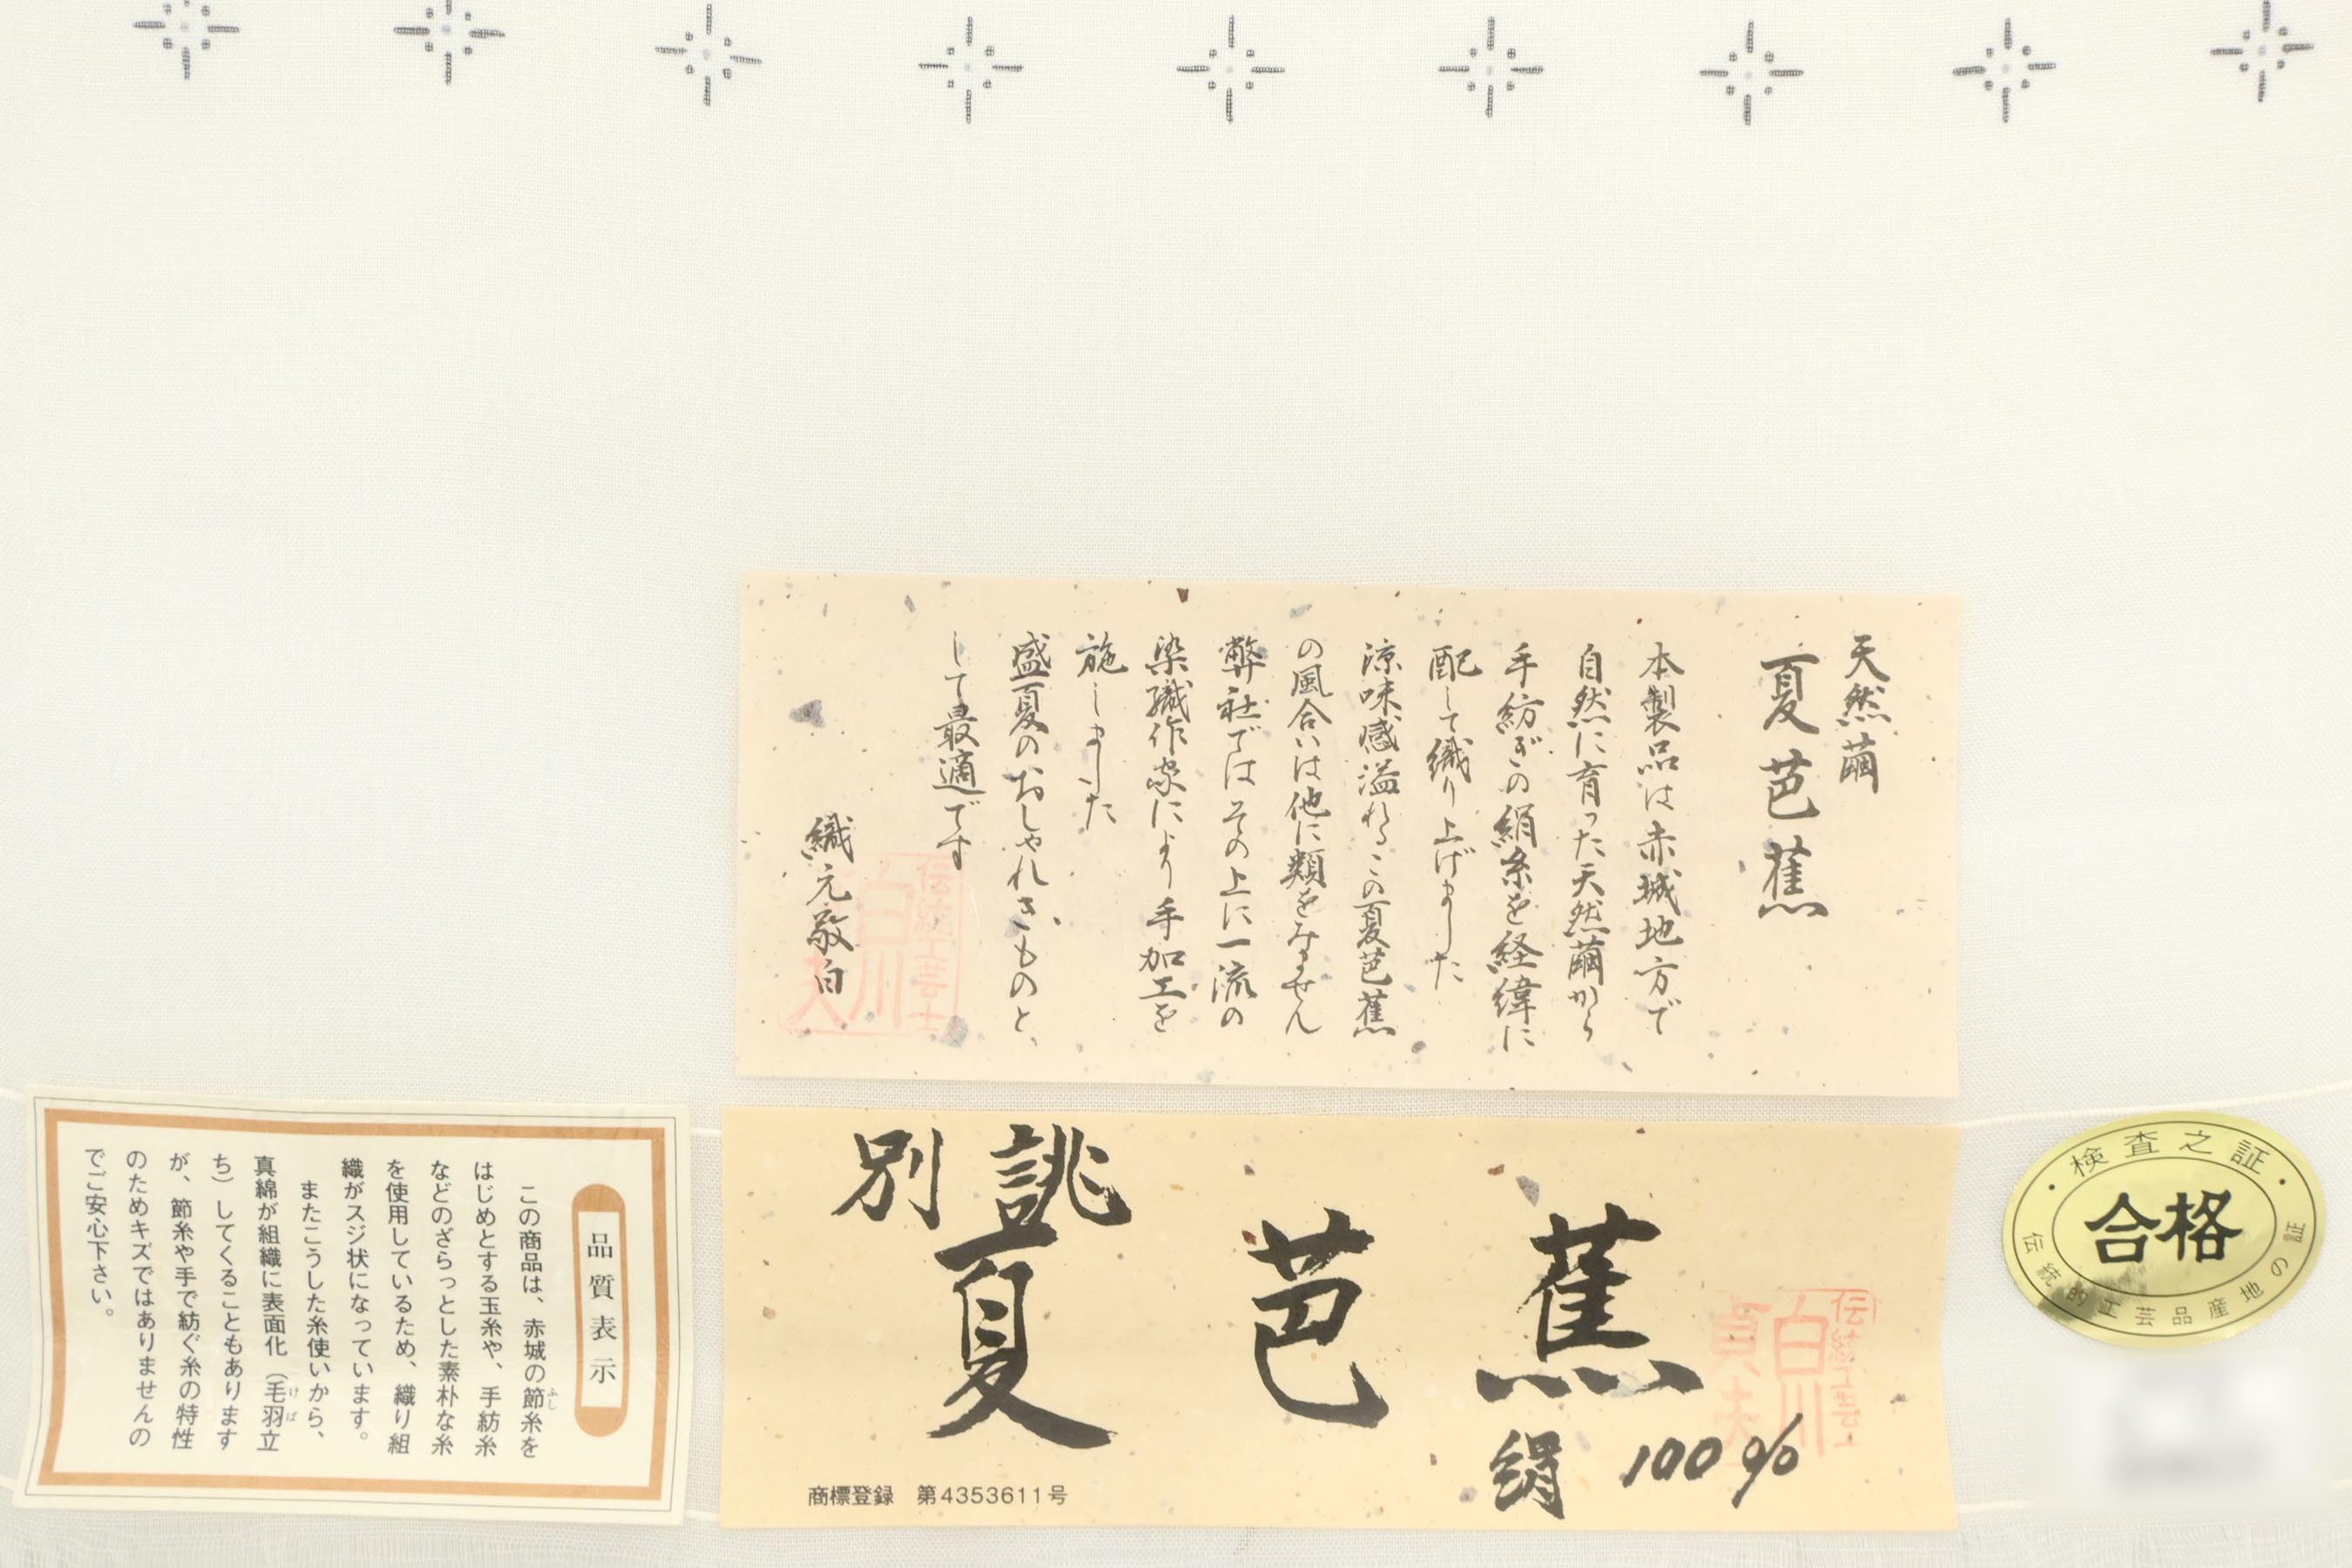 天然繭
夏芭蕉
本製品は赤城地方で
自然に育った天然繭から
手紡ぎの絹糸を経緯に
配して織り上げました
涼味感溢れるこの夏芭蕉
の風合いは他に類をみません
弊社ではその上に一流の
染織作家により手加工を
施しました
盛夏のおしゃれきものと、
して最適です
織元敬白
伝統工芸士
白川
品質表示
この商品は、赤城の節糸を
ふし
はじめとする玉糸や、手紡糸
などのざらっとした素朴な糸
を使用しているため、織り組
織がスジ状になっています。
またこうした糸使いから、
真綿が組織に表面化（毛羽立
けば
ち）してくることもあります
が、節糸や手で紡ぐ糸の特性
のためキズではありませんの
でご安心下さい。
別誂
夏芭蕉
絹100%
伝統工芸士
白川
貞夫
商標登録 第4353611号
・検査之証・
合格
伝統的工芸品産地の証